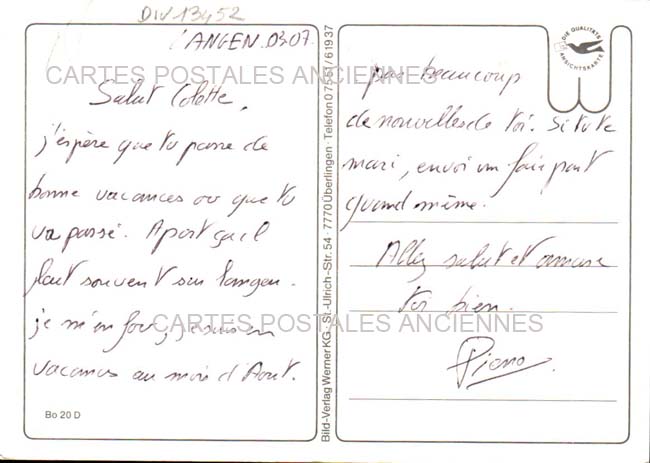 DIV13452
LANGEN.0307.
CARTES POSTALES ANCIENNES
Salut Colette,
j'espère que tu passe de
bonne vacances ou que tu
va passé. Apart ça il
flait souvent sur Langen.
je m'en fou, je suis en
vacances au mois d'Aout.
Bo 20 D
Bild-Verlag Werner KG · St.-Ulrich-Str. 54 · 7770 Überlingen · Telefon 07551/61937
DIE QUALITÄTS
ANSICHTSKARTE
pas beaucoup
de nouvelles de toi. Si tu te
mari, envoi un faire part
quand même.
Allez salut et amuse
toi bien.
CARTES POSTALES ANCIENNES